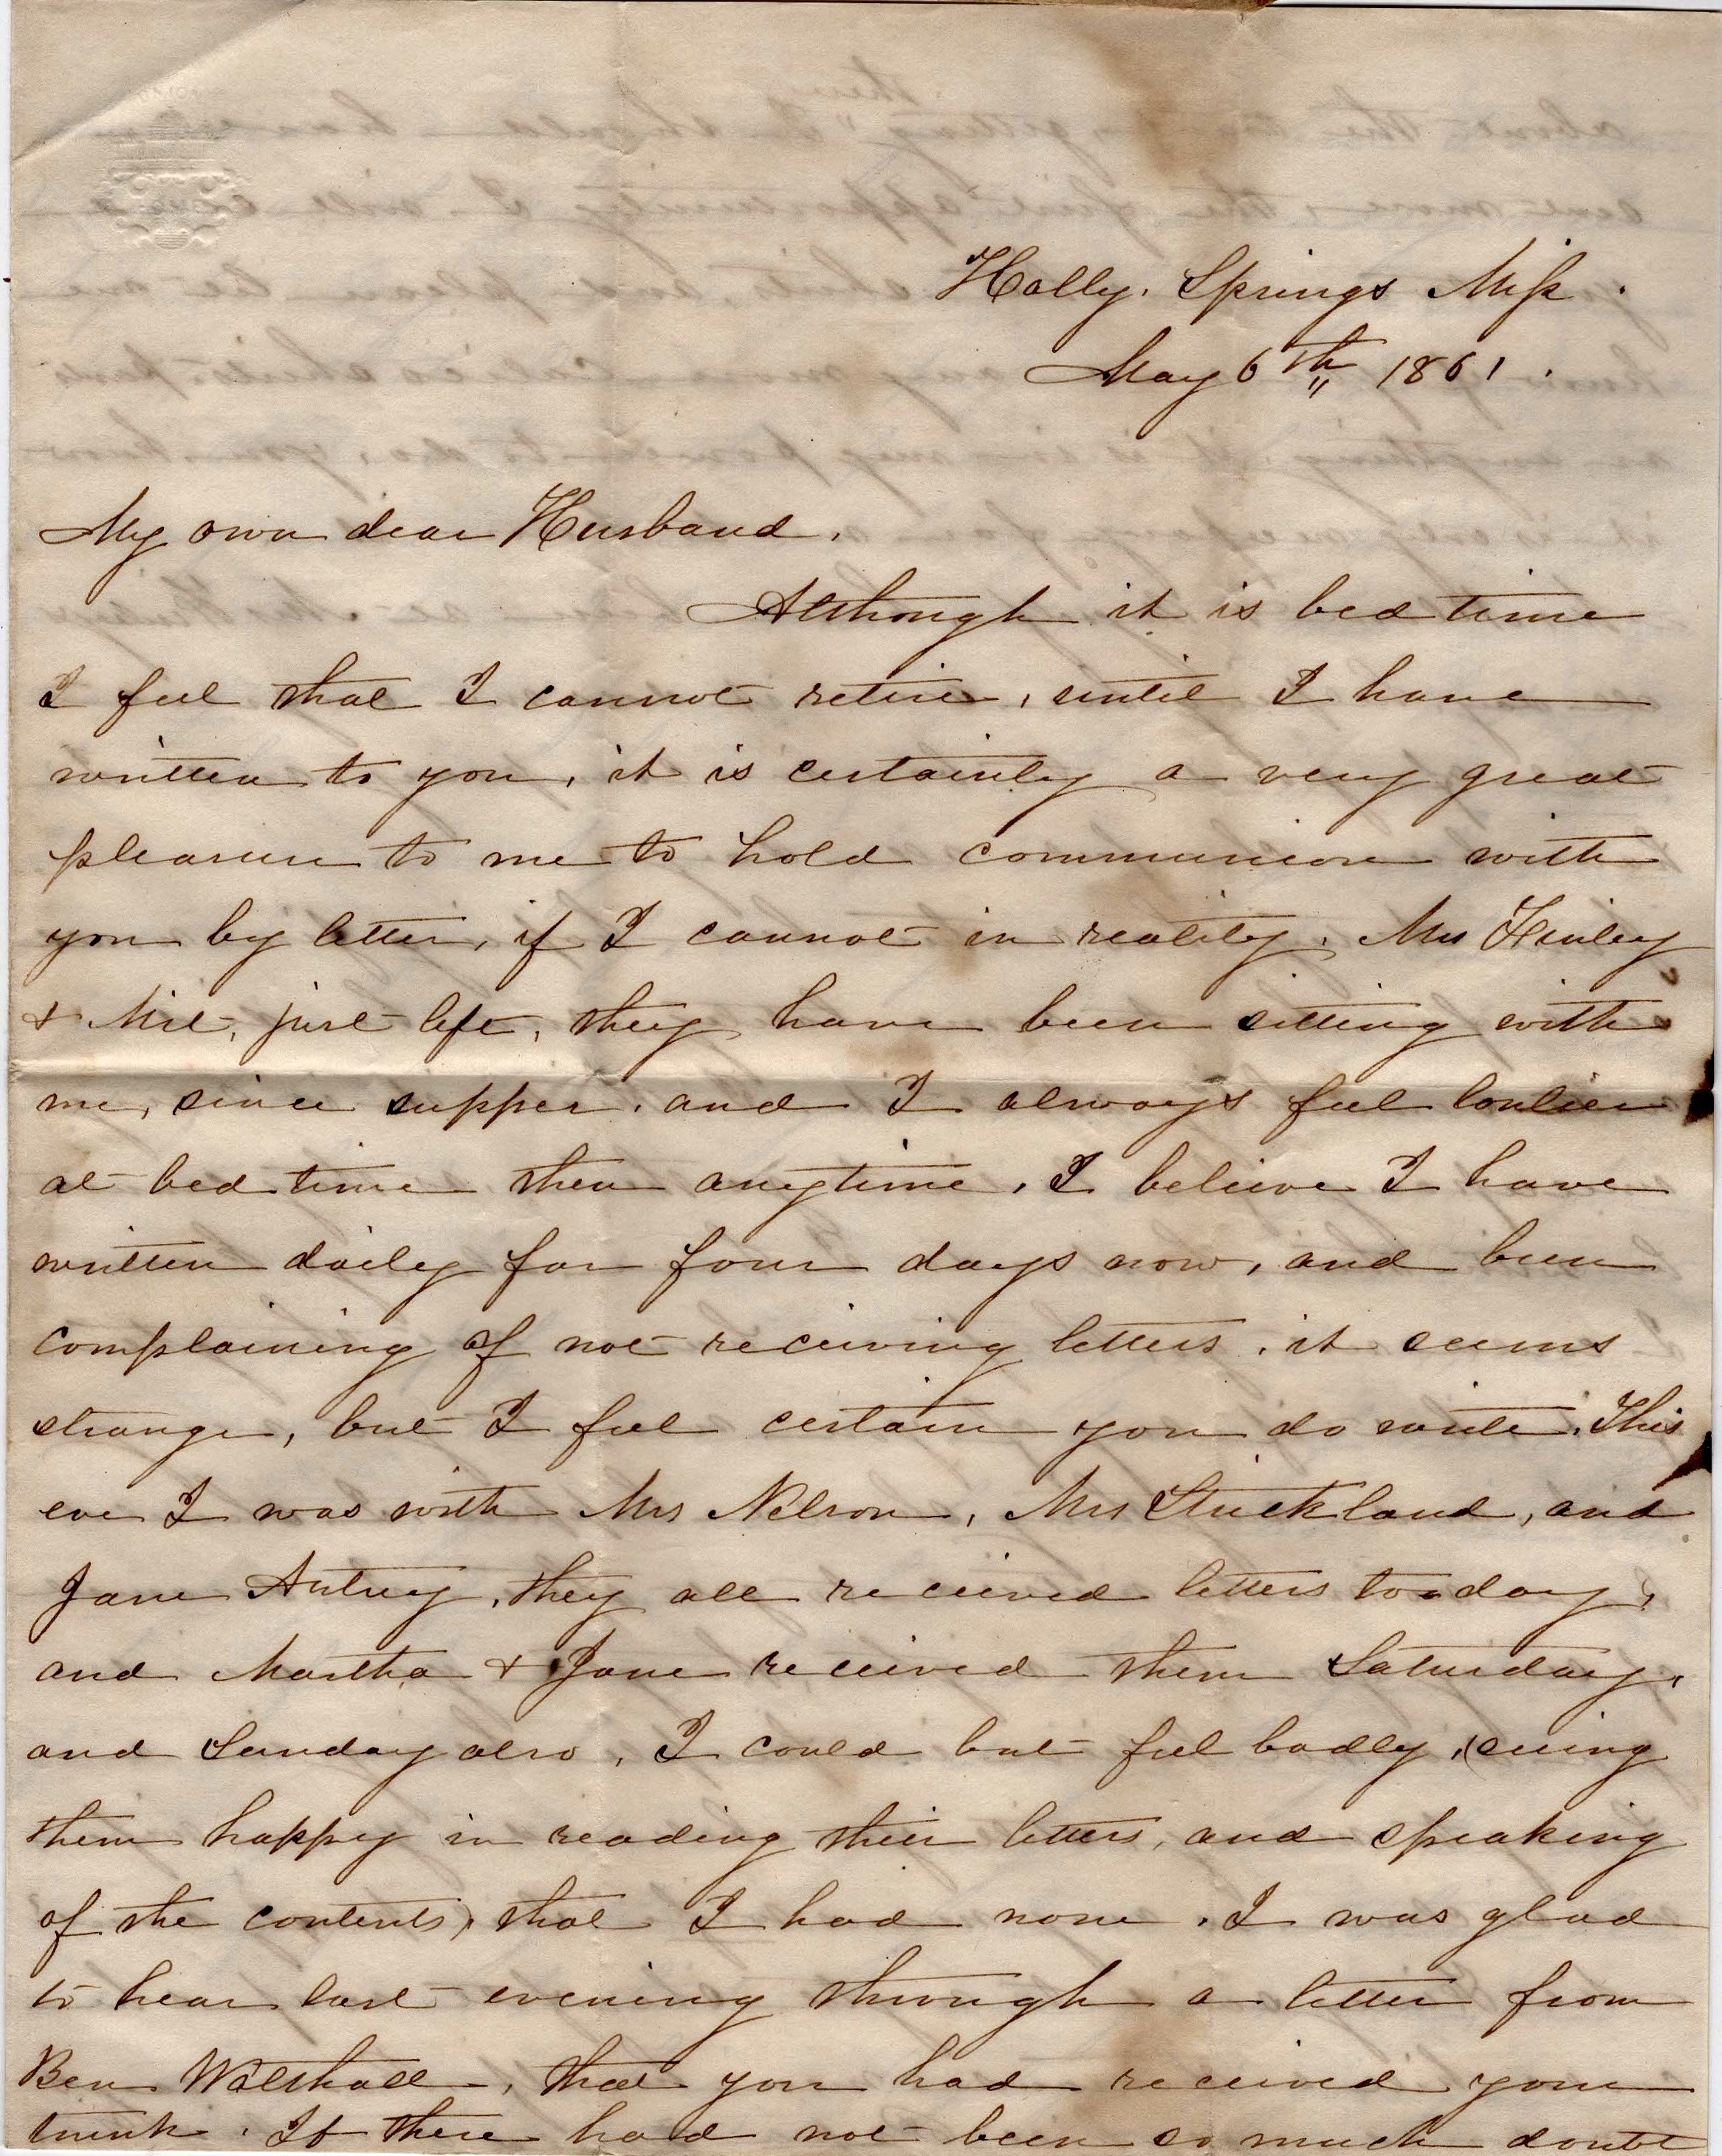 Holly. Springs Miss.
May 6th 1861.
My own dear Husband.
Although it is bed time
I feel that I cannot retire, until I have
written to you, it is certainly a very great
pleasure to me to hold communion with
you by letter, if I cannot in reality. Mrs Finley
& just left, they have been sitting with
me, since supper. and I always feel lonlier
at bed time then anytime. I believe I have
written daily for four days now, and been
complaining of not receiving letters. it seems
strange, but I feel certain you do write. This
eve I was with Mrs Nelson, Mrs Strickland, and
Jane Autrey, they all received letters to day,
and Martha & Jane received them Saturday,
and Sunday also, I could but feel badly, (seeing
them happy in reading their letters, and speaking
of the contents), that I had none. I was glad
to hear last evening through a letter from
Ben Walthall, that you had received your
trunk. If there had not been so much doubt